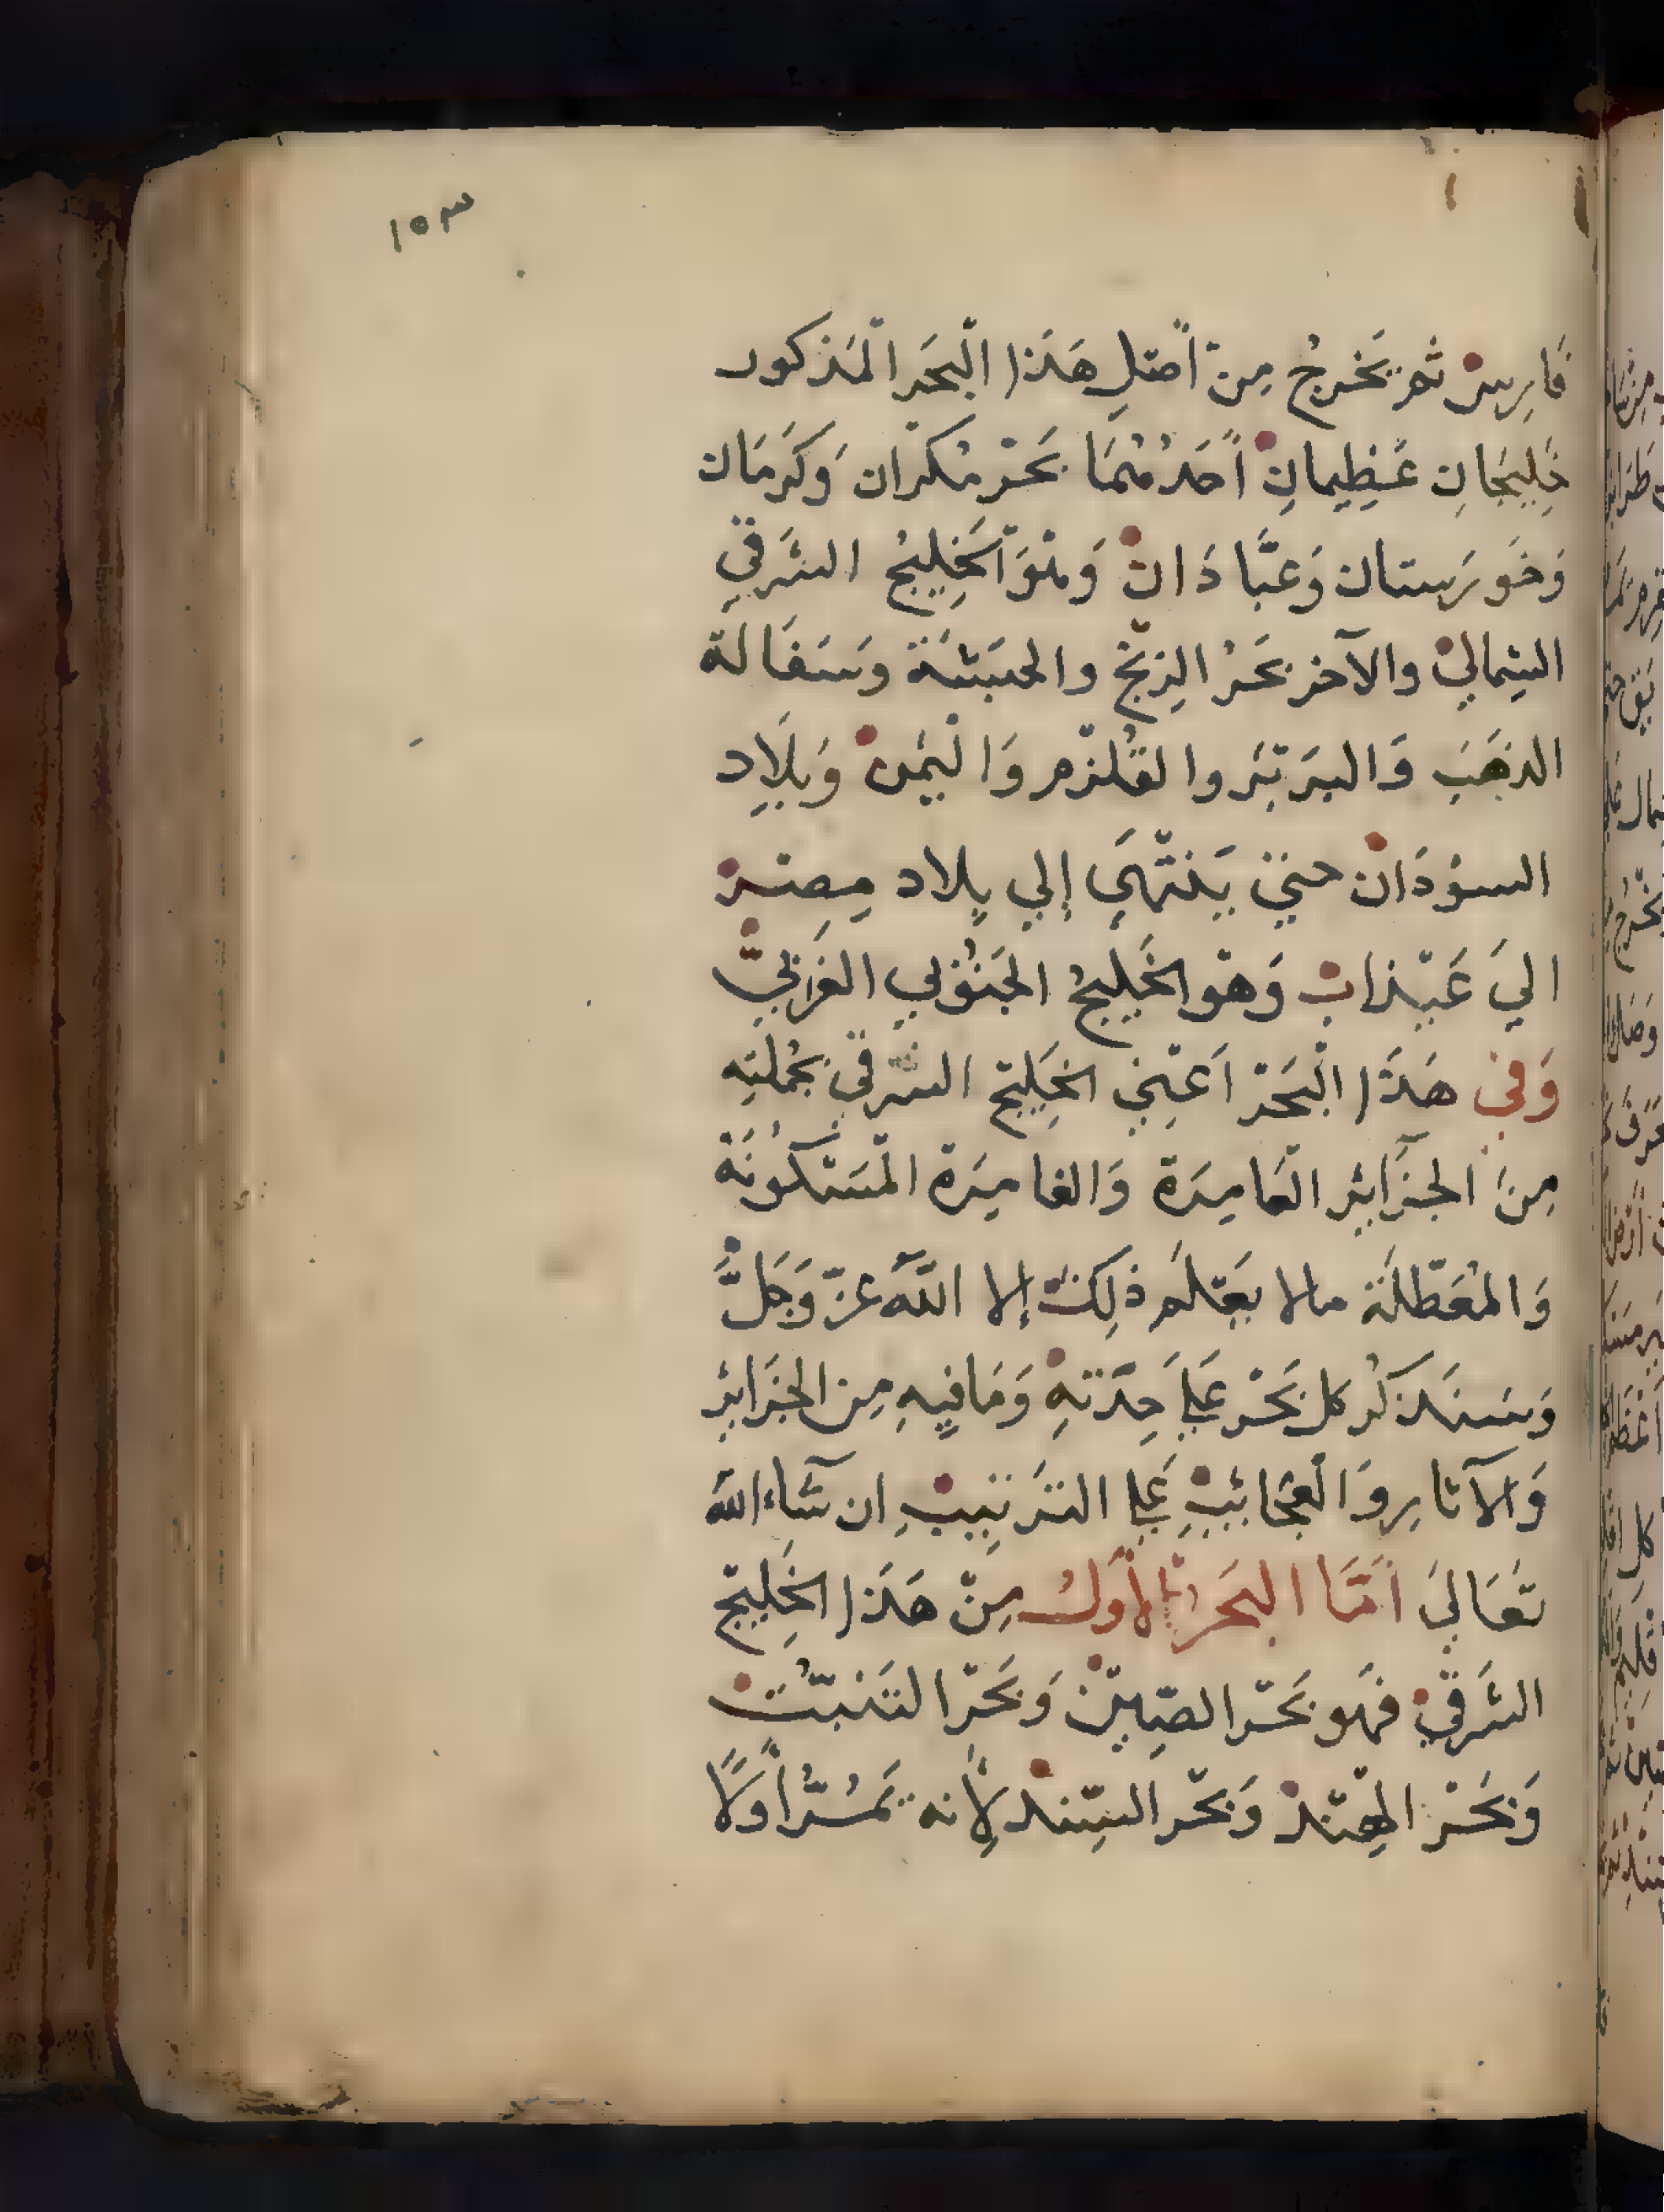 ١٥٣
فَارِس ثم يَخرجُ مِن أصلِ هَذا البَحَر المَذكور
خَلِيجَانِ عَظِيمانِ أحَدهُمَا بَحر مكران وَكَرمَان
وَخَورَستان وَعَبَّادَان وَهْوَ الخَلِيجُ الشَرقي
الشِمالي والآخر بَحرُ الزِنج والحَبَشَة وسَفَالَة
الذهَب وَالبَربَر والقُلزم وَاليَمن وَبِلَاد
السوْدَان حتي يَنتَهَي إلي بِلاد مِصر
اليَ عَيذاب وَهوَ الخَلِيجُ الجَنوُبي الغَرَبيّ
وَفي هَذَا البَحَر اَعنِي الخَلِيج الشرقي بجُملتِه
مِنَ الجَزَايرِ العَامِرَة وَالغامِرَة المَسَكُونَة
وَالمُعَطّلَة مالا يعَلَم ذلِك إلا اللّه عزّ وَجَلَّ
وَسَنَذكُر كل بَحر عَليَ حِدَتهِ وَمَا فِيهِ مِن الجَزَائر
وَالآثارِ وَالعجَائبِ عَلي التَرتِيبِ ان شَاءالله
تعَاليَ أمَّا البَحَر الأوَل مِن هَذا الخَلِيج
الشَرقي فهو بَحر الصِين وَبَحر التنبّت
وَبَحر الهِند وَبَحر السِند لِأنه يَمُرُّ أولًا